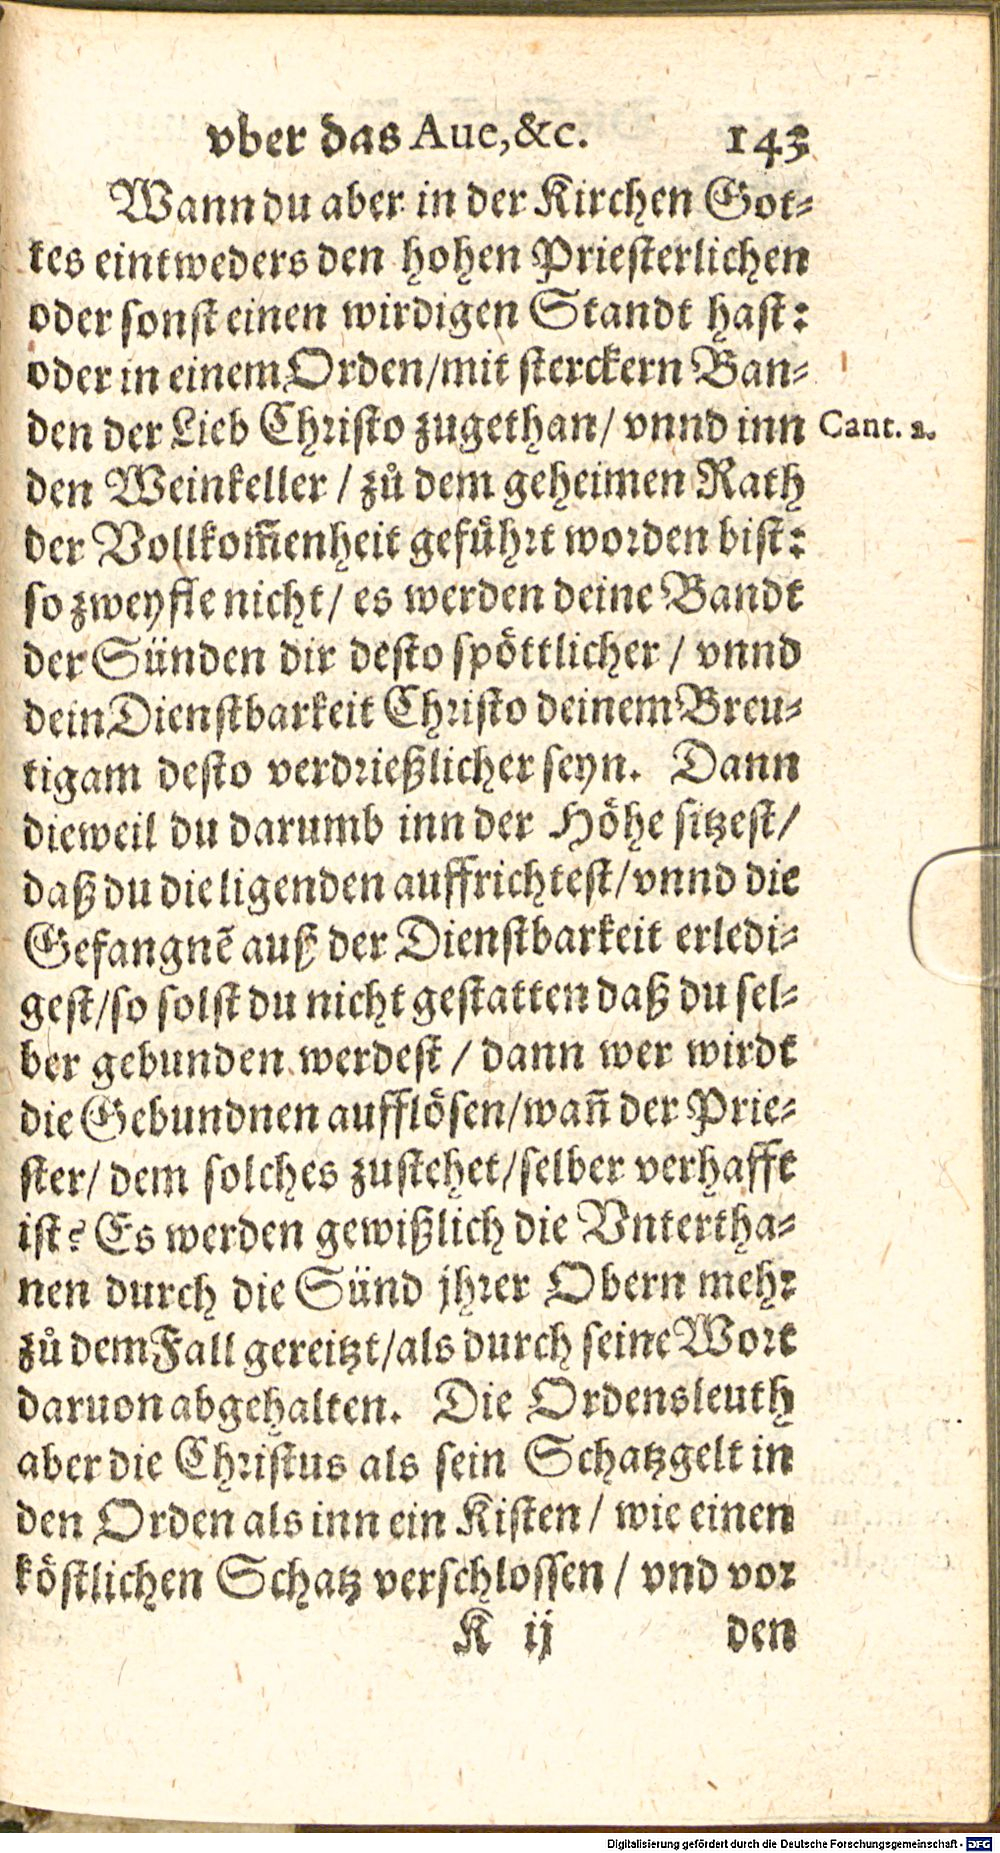 vber das Aue,&c. 143
Wann du aber in der Kirchen Got-
tes eintweders den hohen Priesterlichen
oder sonst einen wirdigen Standt hast:
oder in einem Orden/mit sterckern Ban-
den der Lieb Christo zugethan/ vnnd inn Cant. 2.
den Weinkeller / zů dem geheimen Rath
der Vollkom̄enheit geführt worden bist:
so zweyfle nicht/ es werden deine Bandt
der Sünden dir desto spöttlicher / vnnd
dein Dienstbarkeit Christo deinem Breu-
tigam desto verdrießlicher seyn. Dann
dieweil du darumb inn der Höhe sitzest/
daß du die ligenden auffrichtest/vnnd die
Gefangnẽ auß der Dienstbarkeit erledi-
gest/so solst du nicht gestatten daß du sel-
ber gebunden werdest / dann wer wirdt
die Gebundnen aufflösen/wañ der Prie-
ster/ dem solches zustehet/selber verhafft
ist? Es werden gewißlich die Vntertha-
nen durch die Sünd jhrer Obern mehr
zů dem Fall gereitzt/als durch seine Wort
daruon abgehalten. Die Ordensleuth
aber die Christus als sein Schatzgelt in
den Orden als inn ein Kisten / wie einen
köstlichen Schatz verschlossen / vnd vor
K ij den
Digitalisierung gefördert durch die Deutsche Forschungsgemeinschaft - DFG